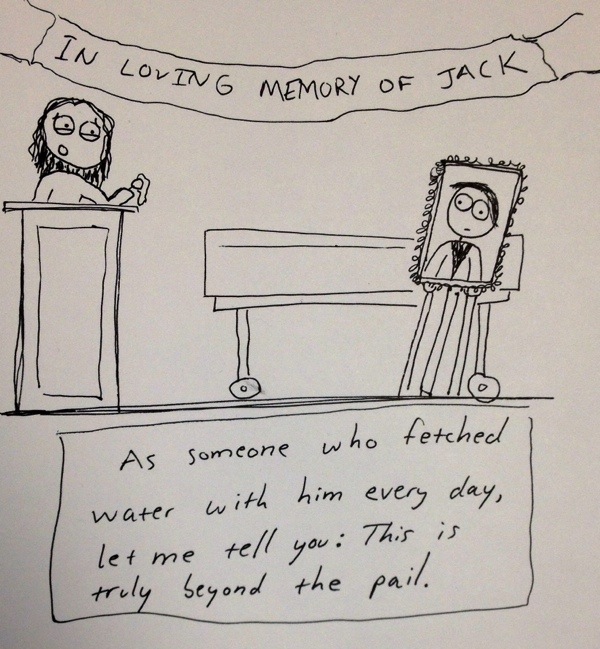 IN LOVING MEMORY OF JACK
As someone who fetched
water with him every day,
let me tell you: This is
truly beyond the pail.